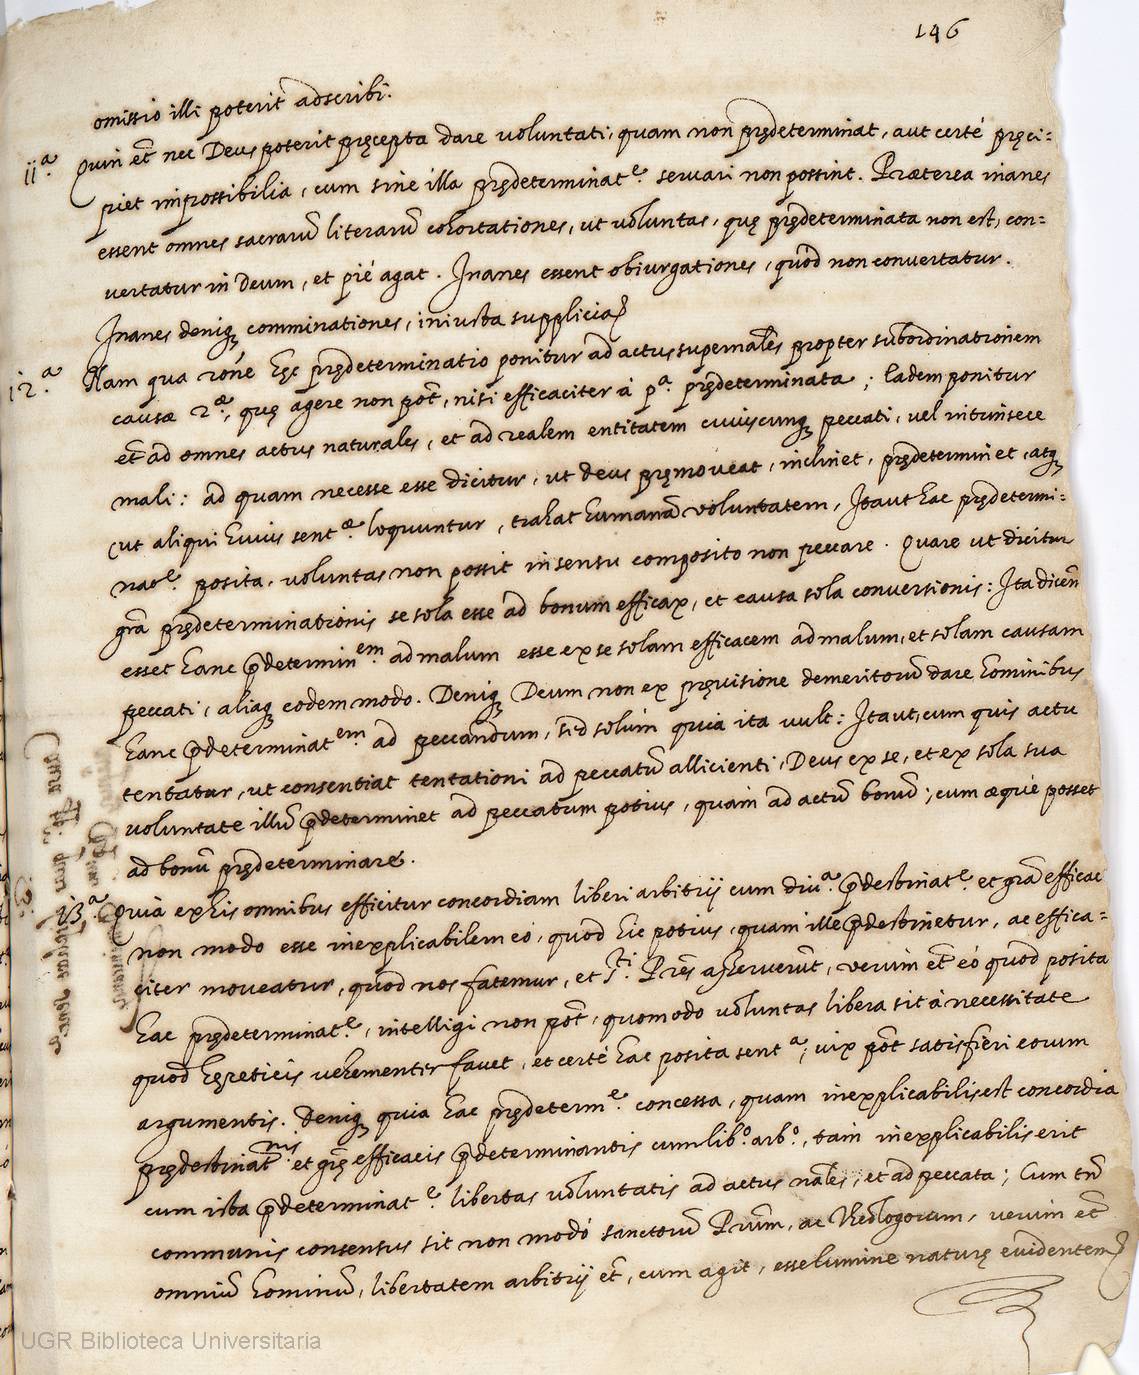 146
omissio illi poterit adscribi.
11ª Quin et̃ nec Deus poterit pręcepta dare voluntati, quam non prędeterminat, aut certè pręci=
piet impossibilia, cum sine illa prędeterminatᵉ. servari non possint. Præterea inanes
essent omnes sacrarũ literarũ cohortationes, ut voluntas, quę prędeterminata non est, con=
vertatur in Deum, et piè agat. Inanes essent obiurgationes, quòd non convertatur.
Inanes deniq; comminationes, iniusta supplicia
12.ª Nam qua rõne hęc prędeterminatio ponitur ad actus supernãles propter subordinationem
causæ 2.æ, quę agere non põt, nisi efficaciter à pª. prędeterminata; Eadem ponitur
et̃ ad omnes actus naturales, et ad realem entitatem cuiuscunq; peccati, vel intrinsece
mali: ad quam necesse esse dicitur, ut deus pręmoveat, inclinet, prędeterminet, atq;
(ut aliqui huius sentæ. loquuntur, trahat humanã voluntatem, Ita ut hac prędetermi=
naoᵉ. posita, voluntas non possit in sensu composito non peccare. Quare ut dicitur
grã prędeterminationis se sola esse ad bonum efficax, et causa sola conversionis: Ita dicen̄
esset hanc p̃determinem. ad malum esse ex se solam efficacem ad malum, et solam causam
peccati, aliaq; eodem modo. Deniq; Deum non ex pręvisione demeritorũ dare hominibus
hanc p̃determinatem. ad peccandum, sed solùm quia ita vult: Ita ut, cum quis actu
tentatur, ut consentiat tentationi ad peccatũ allicienti, Deus ex se, et ex sola sua
voluntate illũ p̃determinet ad peccatum potius, quàm ad actũ bonũ; cum æquè posset
ad bonũ prędeterminare.
13.ª Quia ex his omnibus efficitur concordiam liberi arbitrij cum divª. p̃destinatᵉ. et grã efficac
non modo esse inexplicabilem eò, quòd hic potius, quam ille p̃destinetur, ac effica=
citer moveatur, quòd nos fatemur, et Sti. Prẽs asseruerũt, verùm et̃ eò quòd posita
hac prędeterminatᵉ, intelligi non põt, quomodo voluntas libera sit à necessitate
quod hęreticis vehementer favet, et certè hac posita sentª; vix põt satisfieri eorum
argumentis. Deniq; quia hac prędetermᵉ. concessa, quam inexplicabilis est concordia
prędestinatnis et grę efficacis p̃determinantis cum libº. arbº., tam inexplicabilis erit
cum ista p̃determinatᵉ. libertas voluntatis ad actus nãles, et ad peccata; Cum tñ
communis consensus sit non modò sanctorũ Prũm, ac Theologorum, verùm et̃
omniũ hominũ, libertatem arbitrij et̃, cum agit, esse lumine naturę evidentem
UGR Biblioteca Universitaria